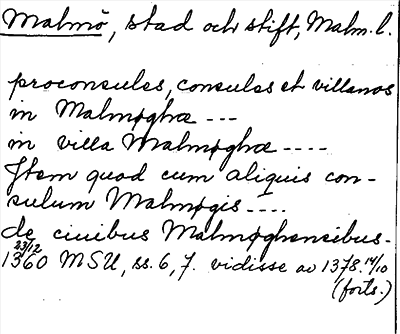 Malmö, stad och stift, Malm. l.
proconsules, consules et villanos
in Malmøghæ ---
in villa Malmøghæ ----
Item quod cum aliquis con-
sulum Malmøgis ----
de ciuibus Malmøghensibus.
23/12
1360 MSU, ss. 6, 7. vidisse av 1378.14/10
(forts.)